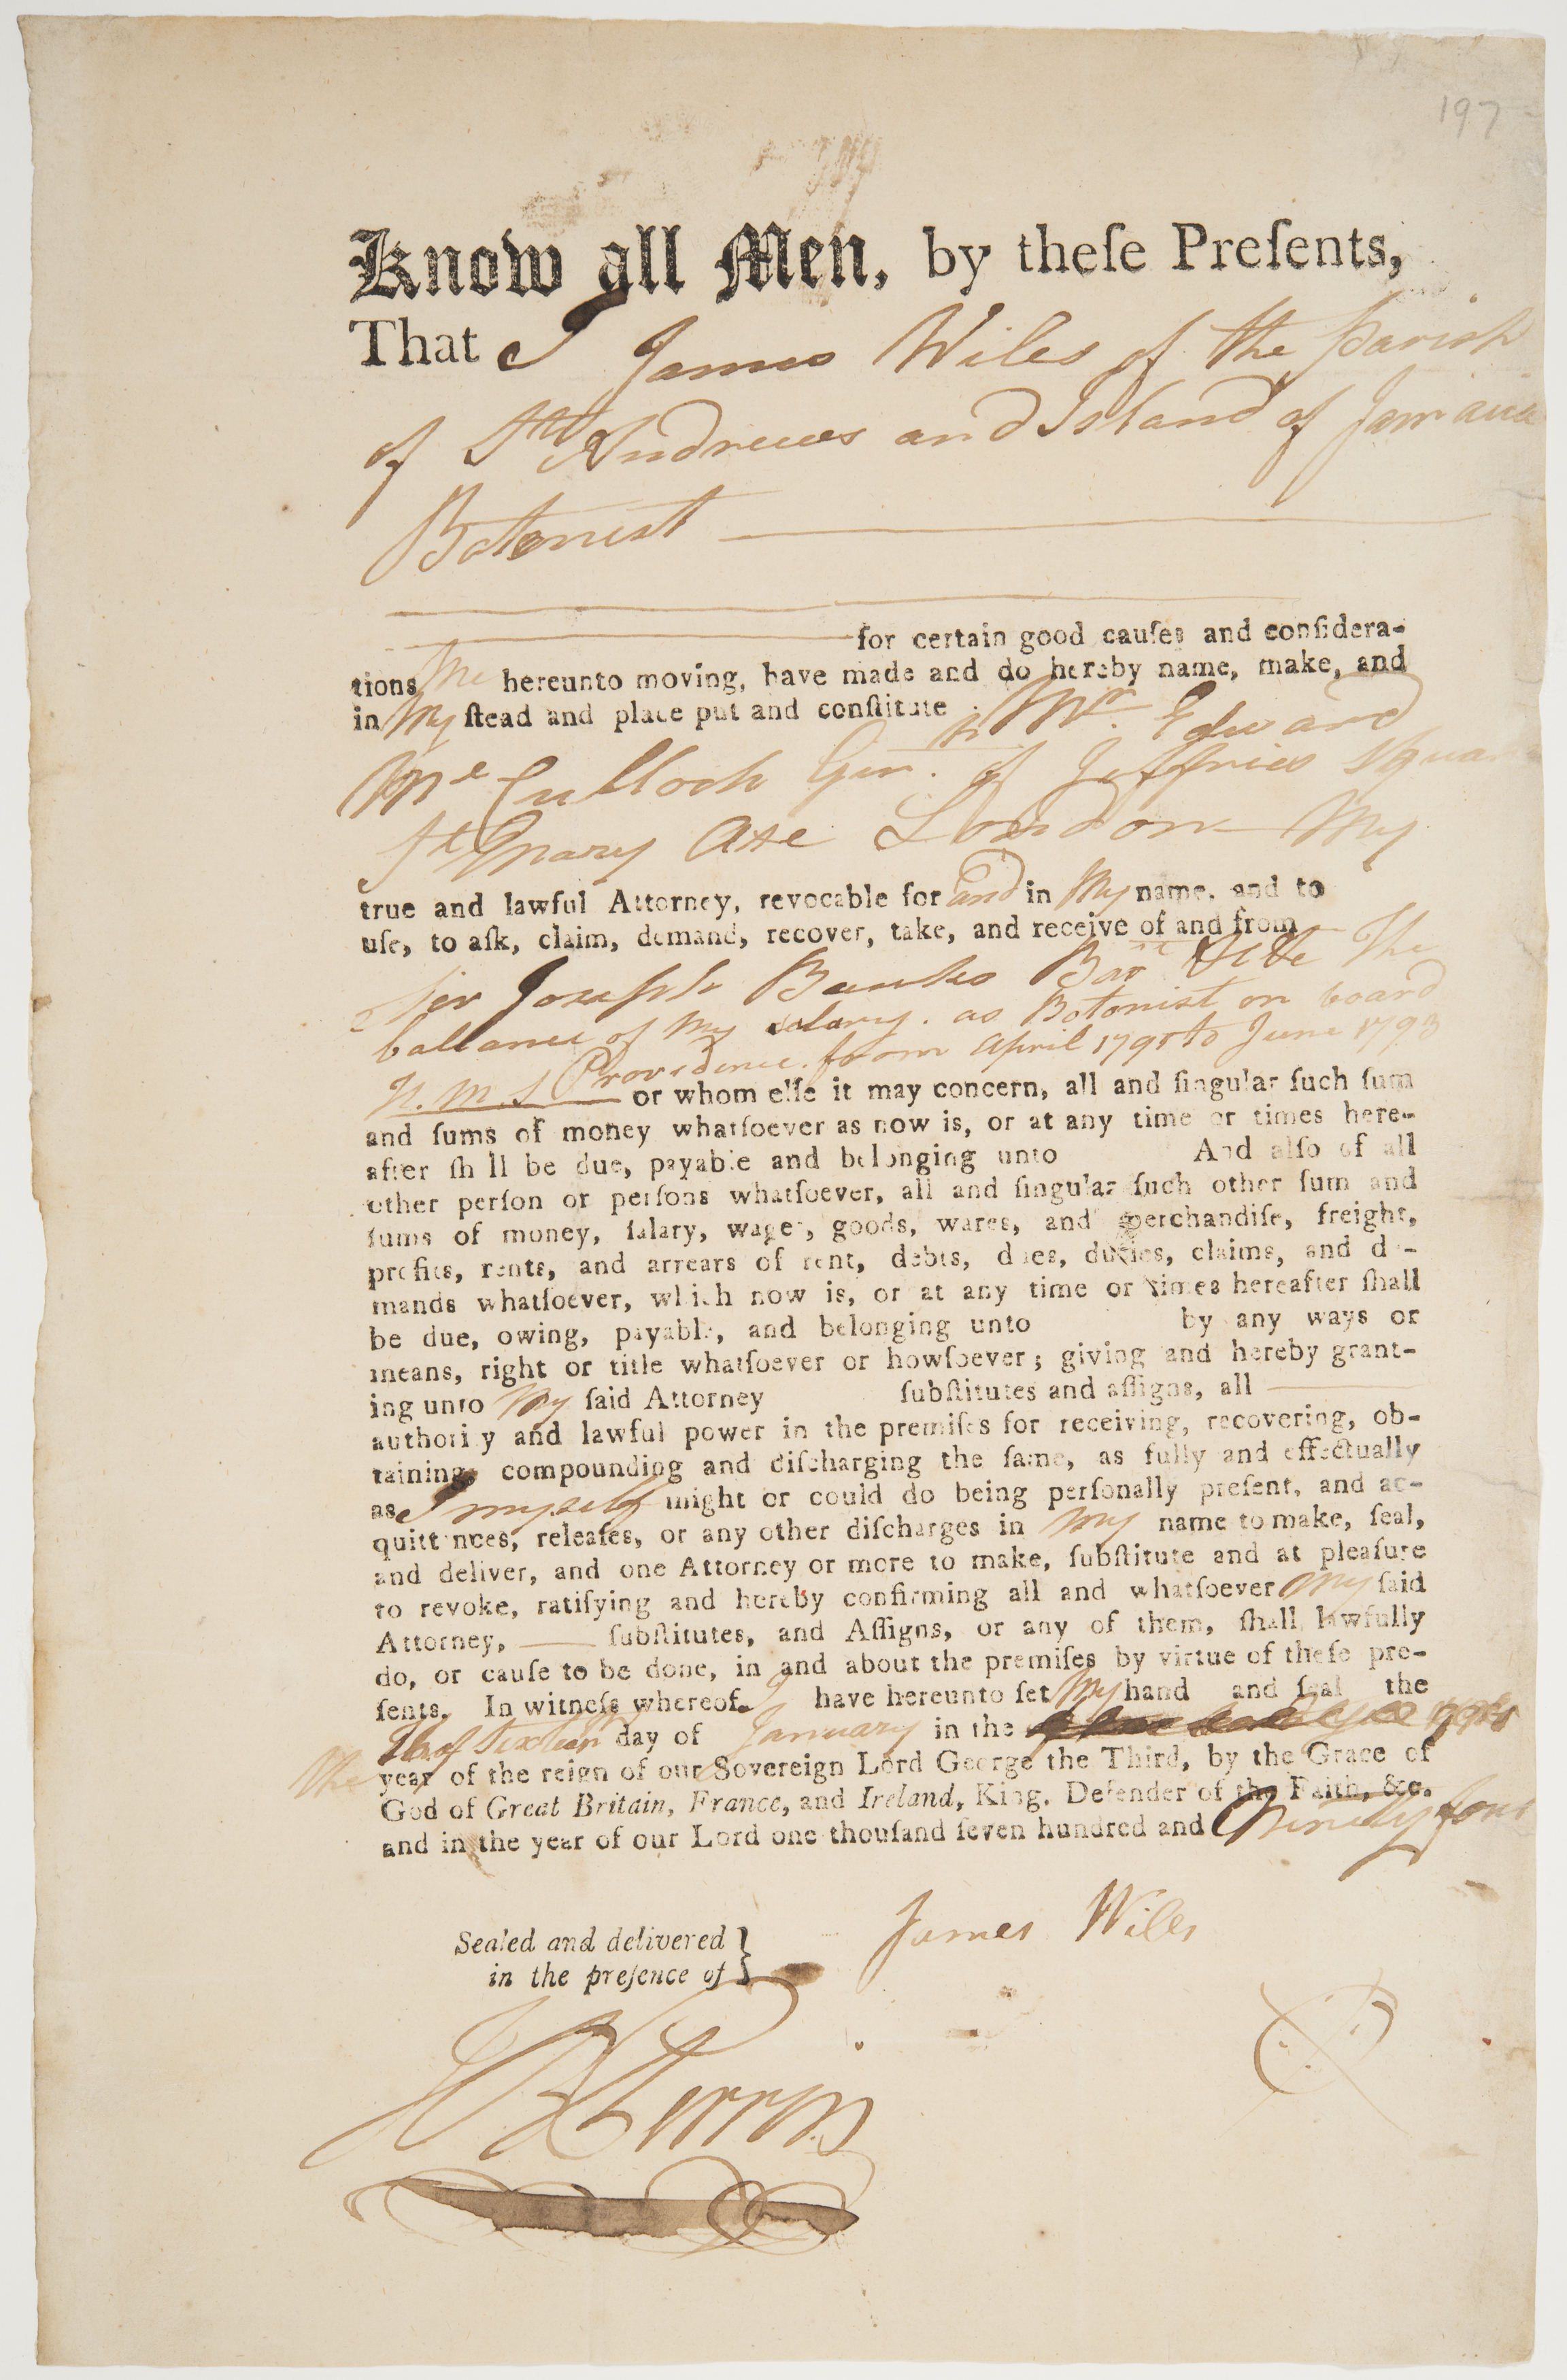 197
Know all Men, by theſe Preſents,
That I James Wiles of the parish
of St Andrews and Island of Jamaica
Botonist
for certain good cauſes and conſidera-
tions Me hereunto moving, have made and do hereby name, make, and
in My ſtead and place put and conſtitute Mr. Edward
Mc Culloch of Jeffries Square
St Mary Axe London My
true and lawful Attorney, revocable for and in My name, and to
uſe, to aſk, claim, demand, recover, take, and receive of and from
Sir Joseph Banks Bart The
ballance of My salary. as Botonist on board
H. M. S Providence. from April 1791 to June 1793
or whom elſe it may concern, all and ſingular ſuch ſum
and ſums of money whatſoever as now is, or at any time or times here-
after ſh ll be due, payable and belonging unto And alſo of all
other perſon or perſons whatſoever, all and ſingular ſuch other ſum and
ſums of money, ſalary, wages, goods, wares, and merchandiſe, freight,
profits, rents, and arrears of rent, debts, dues, duties, claims, and de-
mands whatſoever, which now is, or at any time or times hereafter ſhall
be due, owing, payable, and belonging unto by any ways or
means, right or title whatſoever or howſoever; giving and hereby grant-
ing unto My ſaid Attorney ſubſtitutes and aſſigns, all
authority and lawful power in the premiſes for receiving, recovering, ob-
taining, compounding and diſcharging the ſame, as fully and effectually
as I myself might or could do being perſonally preſent, and ac-
quittances, releaſes, or any other diſcharges in My name to make, ſeal,
and deliver, and one Attorney or more to make, ſubſtitute and at pleaſure
to revoke, ratifying and hereby confirming all and whatſoever My ſaid
Attorney, ſubſtitutes, and Aſſigns, or any of them, ſhall lawfully
do, or cauſe to be done, in and about the premiſes by virtue of theſe pre-
ſents. In witneſs whereof I have hereunto ſet My hand and ſeal the
Sixteen day of January in the
The year of the reign of our Sovereign Lord George the Third, by the Grace of
God of Great Britain, France, and Ireland, King, Defender of the Faith, &c.
and in the year of our Lord one thouſand ſeven hundred and Ninety four
Sealed and delivered
in the preſence of
James Wiles